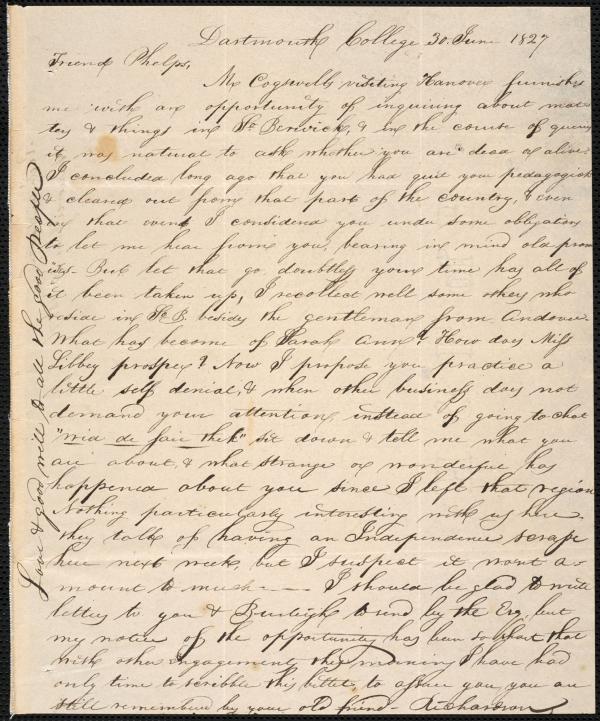 Dartmouth College 30. June 1827
Friend Phelps,
Mr Cogswell's visiting Hanover furnishes
me with an opportunity of inquiring about mat-
ters & things in So. Berwick, & in the course of query
it was natural to ask whether you are dead or alive.
I concluded long ago that you had quit your pedagogick
& cleared out from that part of the country, & even
in that event I considered you under some obligation
to let me hear from you, bearing in mind old prom
ises. But let that go, doubtless your time has all of
it been taken up, I recollect well some others who
reside in So. B. besides the gentleman from Andover.
What has become of Sarah Ann? How does Miss
Libbey prosper? Now I propose you practice a
little self denial, & when other business does not
demand your attention, instead of going to chat
"wid de fair thek" sit down & tell me what you
are about, & what strange or wonderful has
happened about you since I left that region
Nothing particularly interesting with us here.
they talk of having an Independence scrape
here next week, but I suspect it wont a-
mount to much - - - I should be glad to write
letters to you & Burleigh to send by the Esq. but
my notice of the opportunity has been so short that
with other engagements this morning I have had
only time to scribble this billet to assure you, you are
still remembered by your old friend - Richardson
Love & good will to all the good people